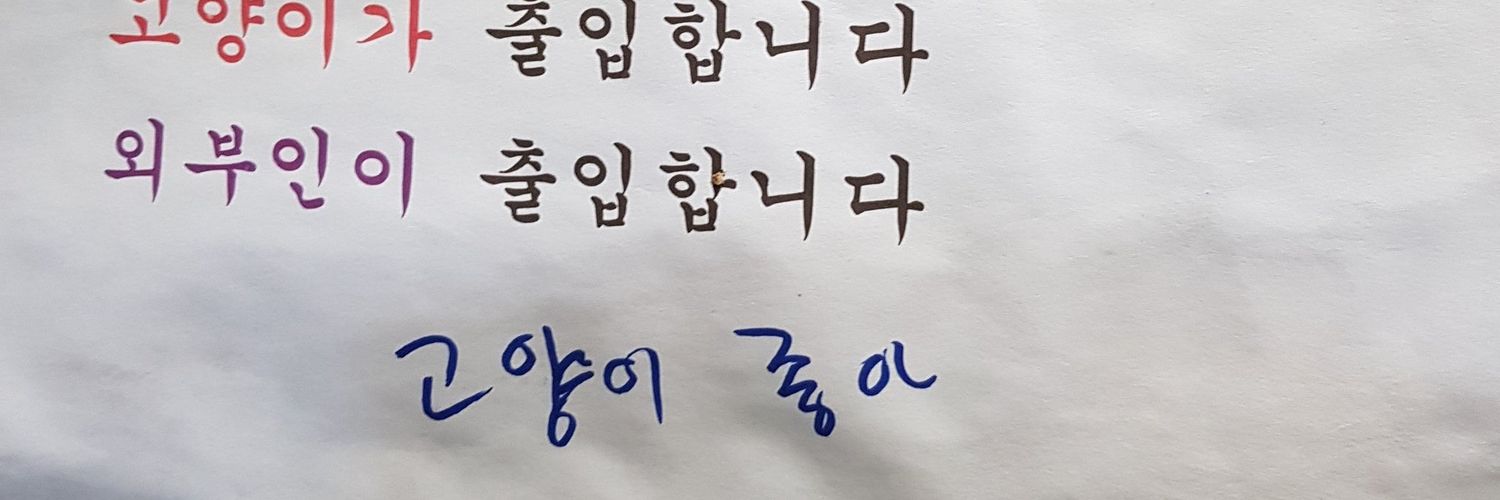 고양이가 출입합니다
외부인이 출입합니다
고양이 좋아